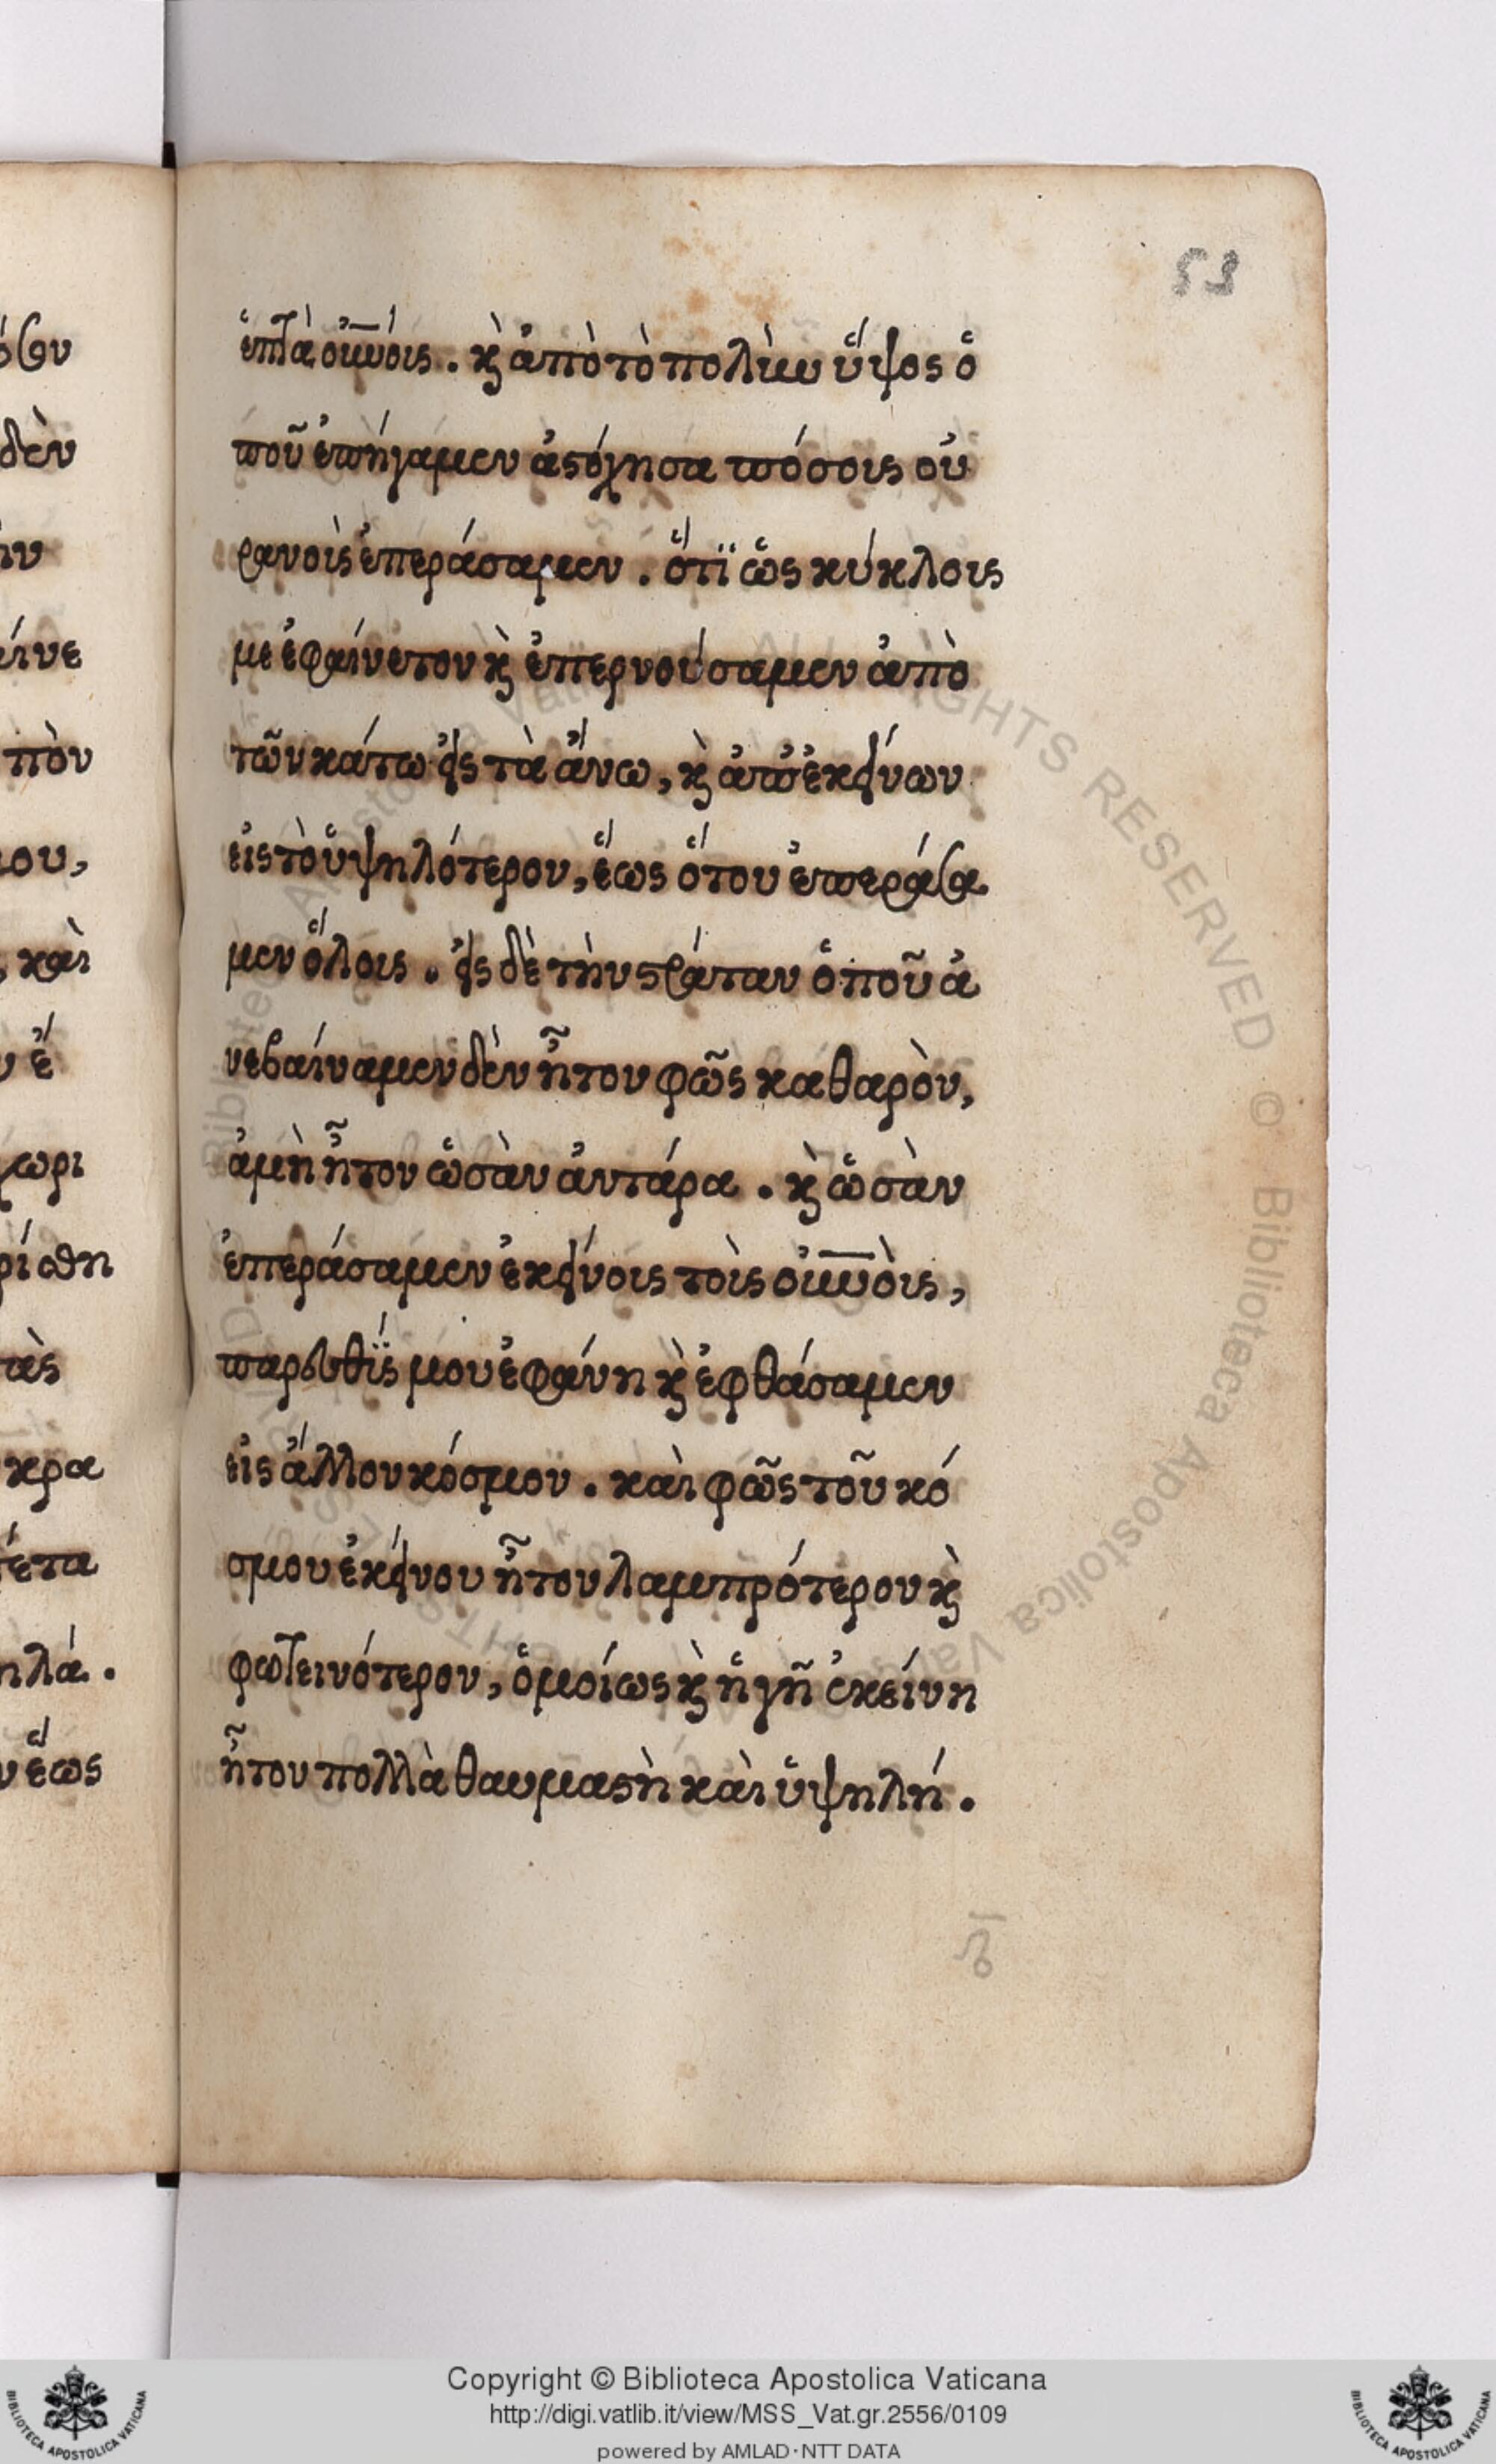 53
ἑπτὰ οὐνοὶς. κ̀ ἀπὸ τὸ πολὺν ὕψος ὁ
ποῦ ἐπήγαμεν ἀστόχησα πόσοις οὐ
ρανοὶς ἐπεράσαμεν. ὅτϊ ὡς κύκλοις
με ἐφαίνετον κ̀ ἐπερνούσαμεν ἀπὸ
τῶν κάτω εἰς τὰ ἄνω, κ̀ ἀπ' ἐκείνων
εἰς τὸ ὑψηλότερον, ἕως ὅτου ἐπεράσα
μεν ὅλοις. εἰς δὲ τὴν στράταν ὁποῦ ἀ
νεβαίναμεν δὲν ἦτον φῶς καθαρὸν,
ἀμὴ ἦτον ὡσὰν ἀντάρα. κ̀ ὡσὰν
ἐπεράσαμεν ἐκείνοις τοὶς οὐνοὶς,
παρευθΐς μου ἐφάνη κ̀ ἐφθάσαμεν
εἰς ἄλλον κόσμον. καὶ φῶς τοῦ κό
σμου ἐκείνου ἦτον λαμπρότερον κ̀
φωτεινότερον, ὁμοίως κ̀ ἡ γῆ ἐκείνη
ἦτον πολλὰ θαυμαστὴ καὶ ὑψηλή.
δὲν
εῖνε
πὸν
μου,
καὶ
ἕως
ALL RIGHTS RESERVED © Biblioteca Apostolica Vaticana
Copyright © Biblioteca Apostolica Vaticana
http://digi.vatlib.it/view/MSS_Vat.gr.2556/0109
powered by AMLAD·NTT DATA
BIBLIOTECA APOSTOLICA VATICANA
BIBLIOTECA APOSTOLICA VATICANA